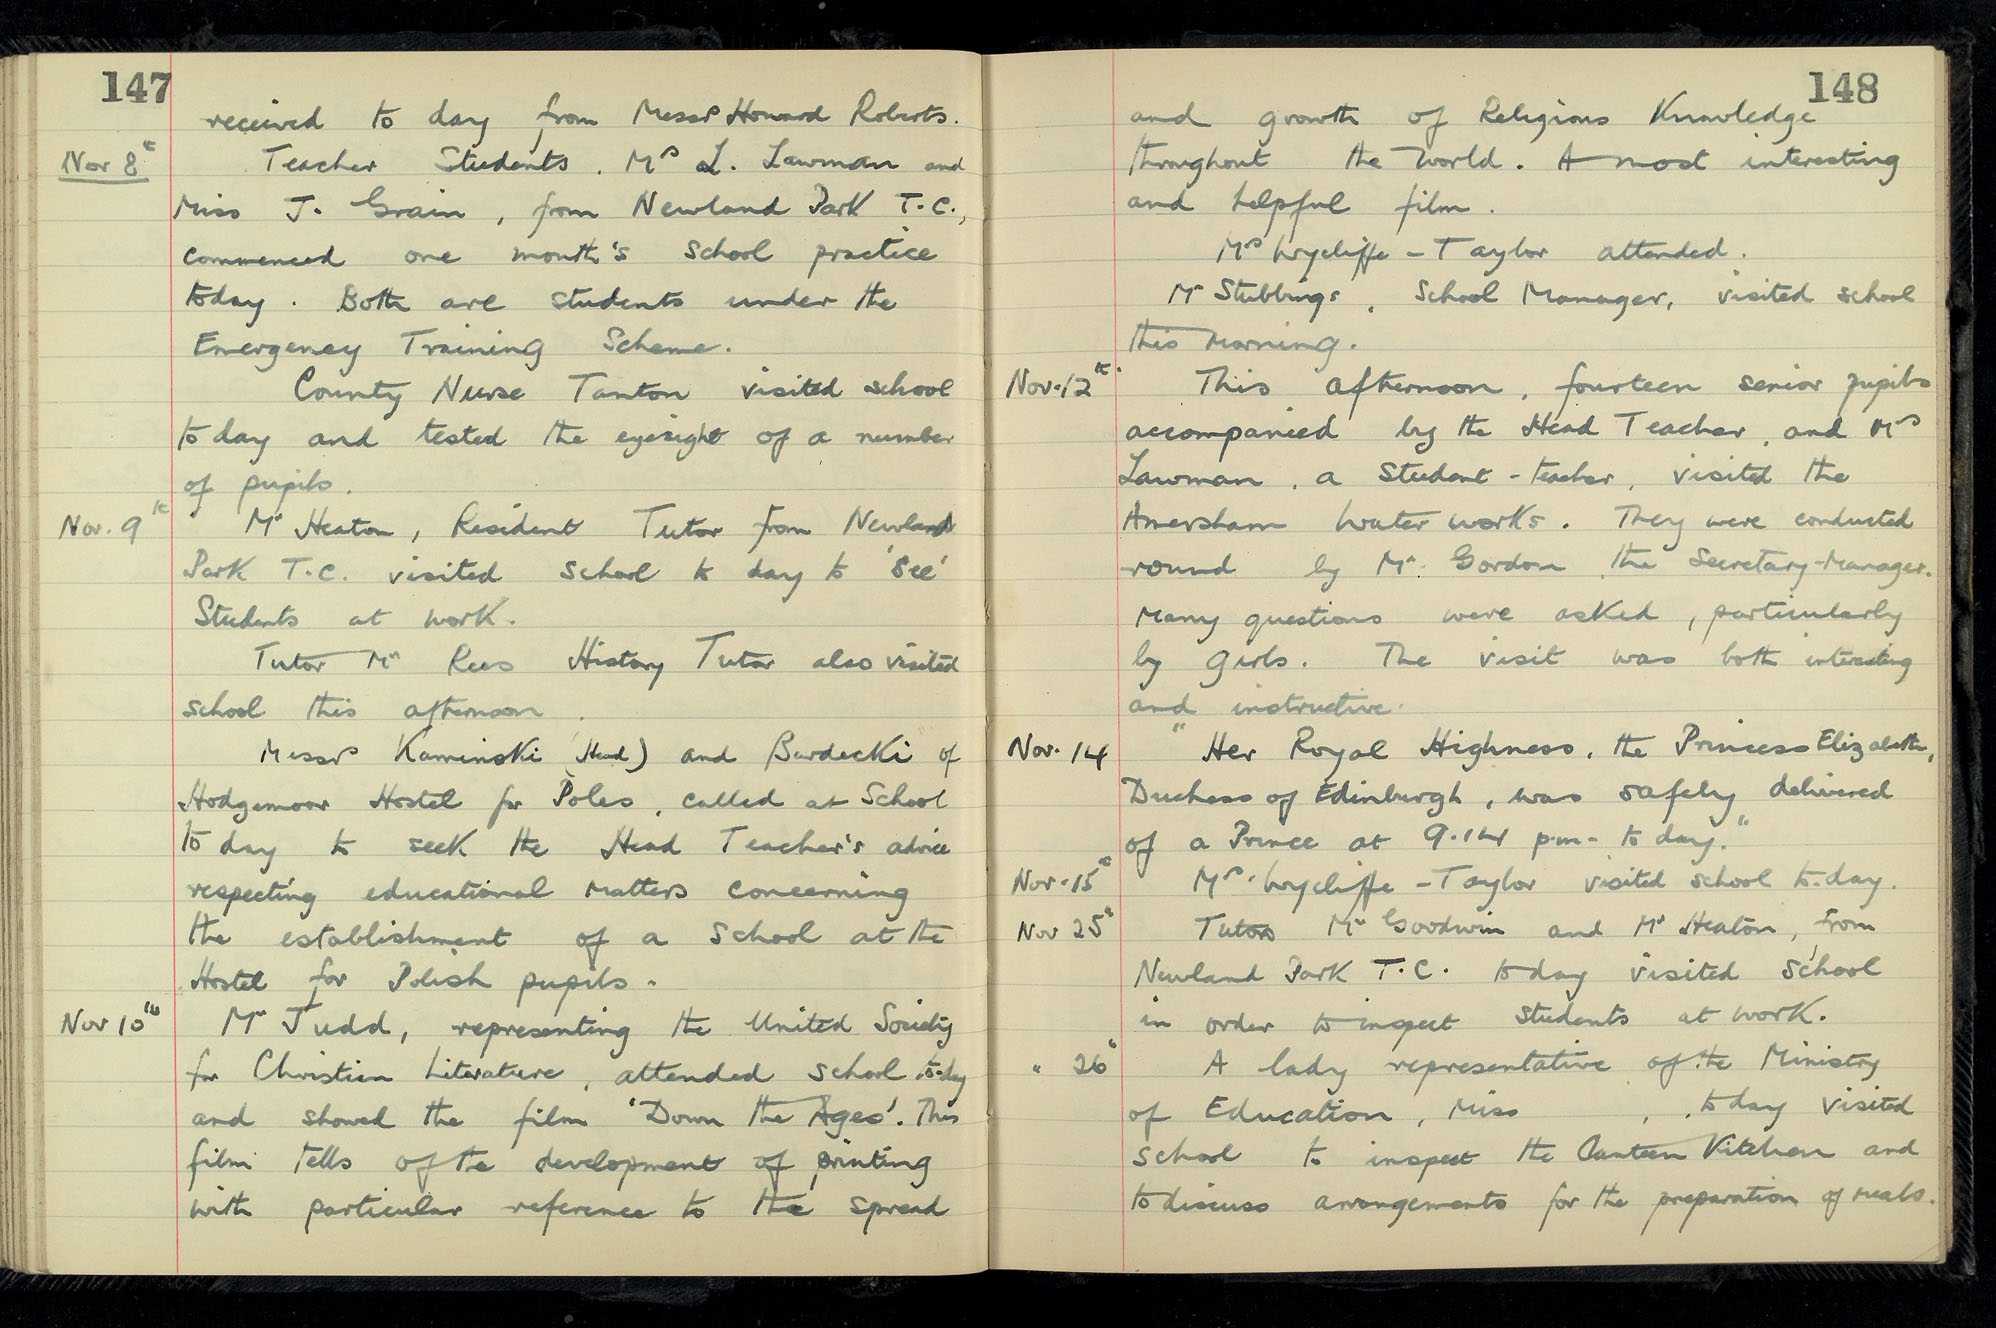 147
received to day from Messrs Howard Roberts.
Nov 8th Teacher Students. Mrs L. Lawman and
Miss J. Grain, from Newland Park T.C.,
commenced one month's school practice
today. Both are students under the
Emergency Training Scheme.
County Nurse Tanton visited school
to day and tested the eyesight of a number
of pupils.
Nov. 9th Mr Heaton, Resident Tutor from Newland
Park T.C. visited school to day to 'see'
Students at work.
Tutor Mr Rees History Tutor also visited
school this afternoon.
Messrs Kaminski (Head) and Bardecki of
Hodgemoor Hostel for Poles, called at School
to day to seek the Head Teacher's advice
respecting educational matters concerning
the establishment of a School at the
Hostel for Polish pupils.
Nov 10th Mr Judd, representing the United Society
for Christian Literature, attended school to-day
and showed the film 'Down the Ages'. This
film tells of the development of printing
with particular reference to the spread
148
and growth of Religious Knowledge
throughout the World. A most interesting
and helpful film.
Mrs Wycliffe-Taylor attended.
Mr Stubbings, School Manager, visited school
this morning.
Nov. 12th. This afternoon, fourteen senior pupils
accompanied by the Head Teacher, and Mrs
Lawman, a Student-teacher, visited the
Amersham Water works. They were conducted
round by Mr. Gordon, the Secretary-Manager.
Many questions were asked, particularly
by girls. The visit was both interesting
and instructive.
Nov. 14 "Her Royal Highness, the Princess Elizabeth,
Duchess of Edinburgh, was safely delivered
of a Prince at 9.14 p.m. to day."
Nov. 15th Mrs. Wycliffe-Taylor visited school to-day.
Nov 25" Tutors Mr Goodwin and Mr Heaton, from
Newland Park T.C. today visited school
in order to inspect students at work.
" 26" A lady representative of the Ministry
of Education, Miss , , today visited
school to inspect the Canteen Kitchen and
to discuss arrangements for the preparation of meals.